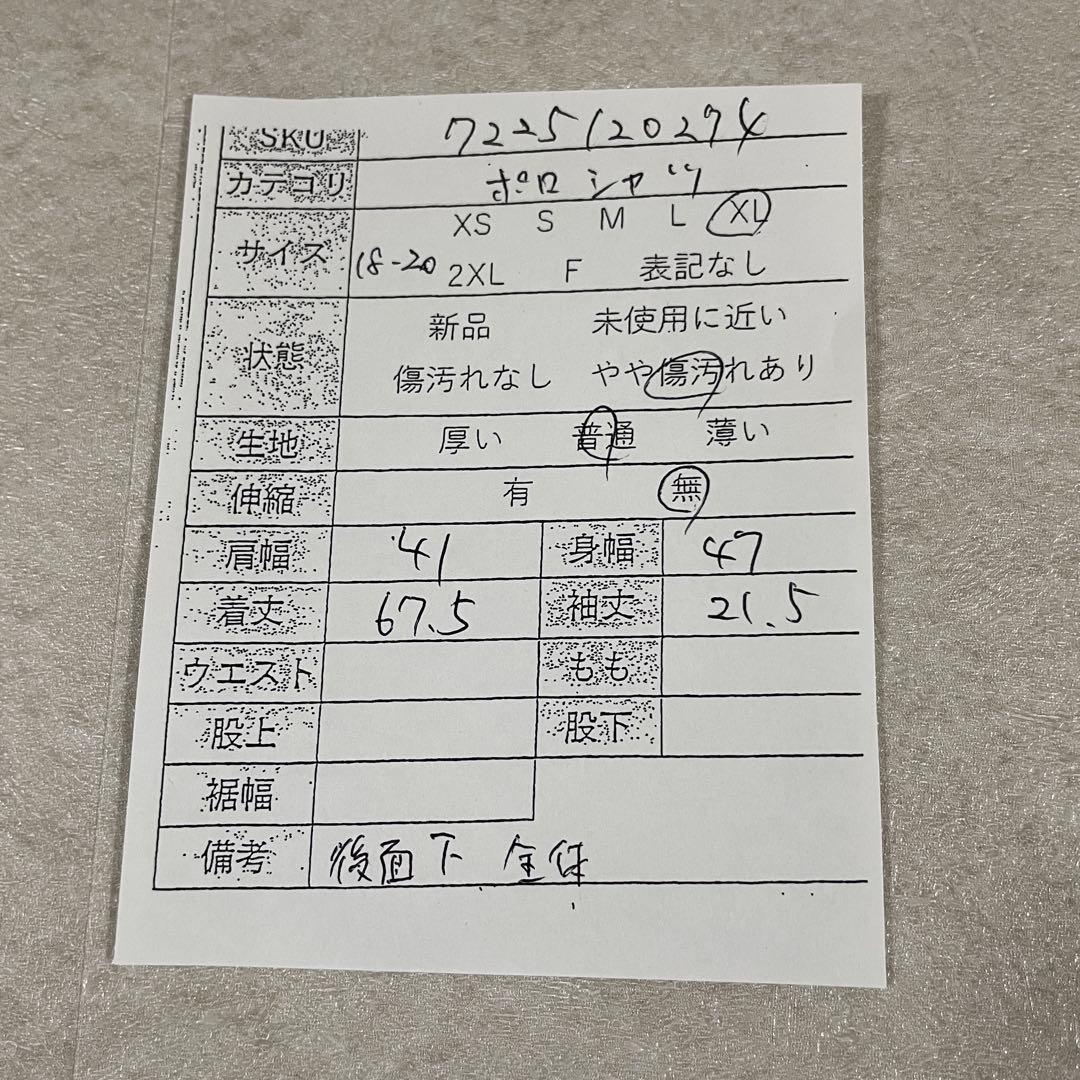 SKU 7225120274
カテゴリ ポロシャツ
XS S M L XL
サイズ 18-20 2XL F 表記なし
新品 未使用に近い
状態
傷汚れなし やや傷汚れあり
生地 厚い 普通 薄い
伸縮 有 無
肩幅 41 身幅 47
着丈 67.5 袖丈 21.5
ウエスト もも
股上 股下
裾幅
備考 後面下 全体